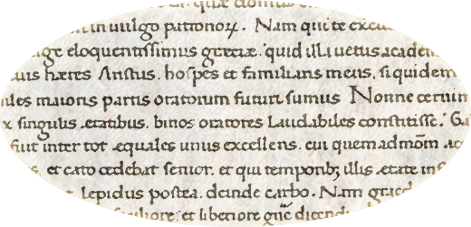 quae
in uulgo patronoꝝ. Nam qui te
eloquentissimus greciae. quid illi uetus
haeres Aristus. hospes et familiaris meus. si quidem
maioris partis oratorum futuri sumus Nonne
singulis aetatibus. binos oratores laudabiles constitisse.
fuit inter tot aequales unus excellens. cui quemadmõm
et cato cedebat senior. et qui temporibꝫ illis aetate
Lepidus postea. deinde carbo. Nam
et liberiore